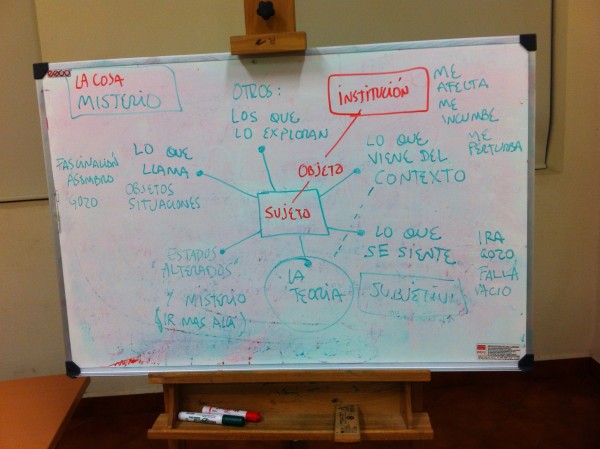 LA COSA
MISTERIO
OTROS:
LOS QUE
LO EXPLORAN
INSTITUCIÓN
ME
AFECTA
ME
INCUMBE
ME
PERTURBA
FASCINACIÓN
ASOMBRO
GOZO
LO QUE
LLAMA
OBJETOS
SITUACIONES
OBJETO
LO QUE
VIENE DEL
CONTEXTO
SUJETO
LO QUE
SE SIENTE
IRA
GOZO
FALLA
VACIO
ESTADOS
ALTERADOS
Y MISTERIO
(IR MAS ALLÁ)
LA
TEORÍA